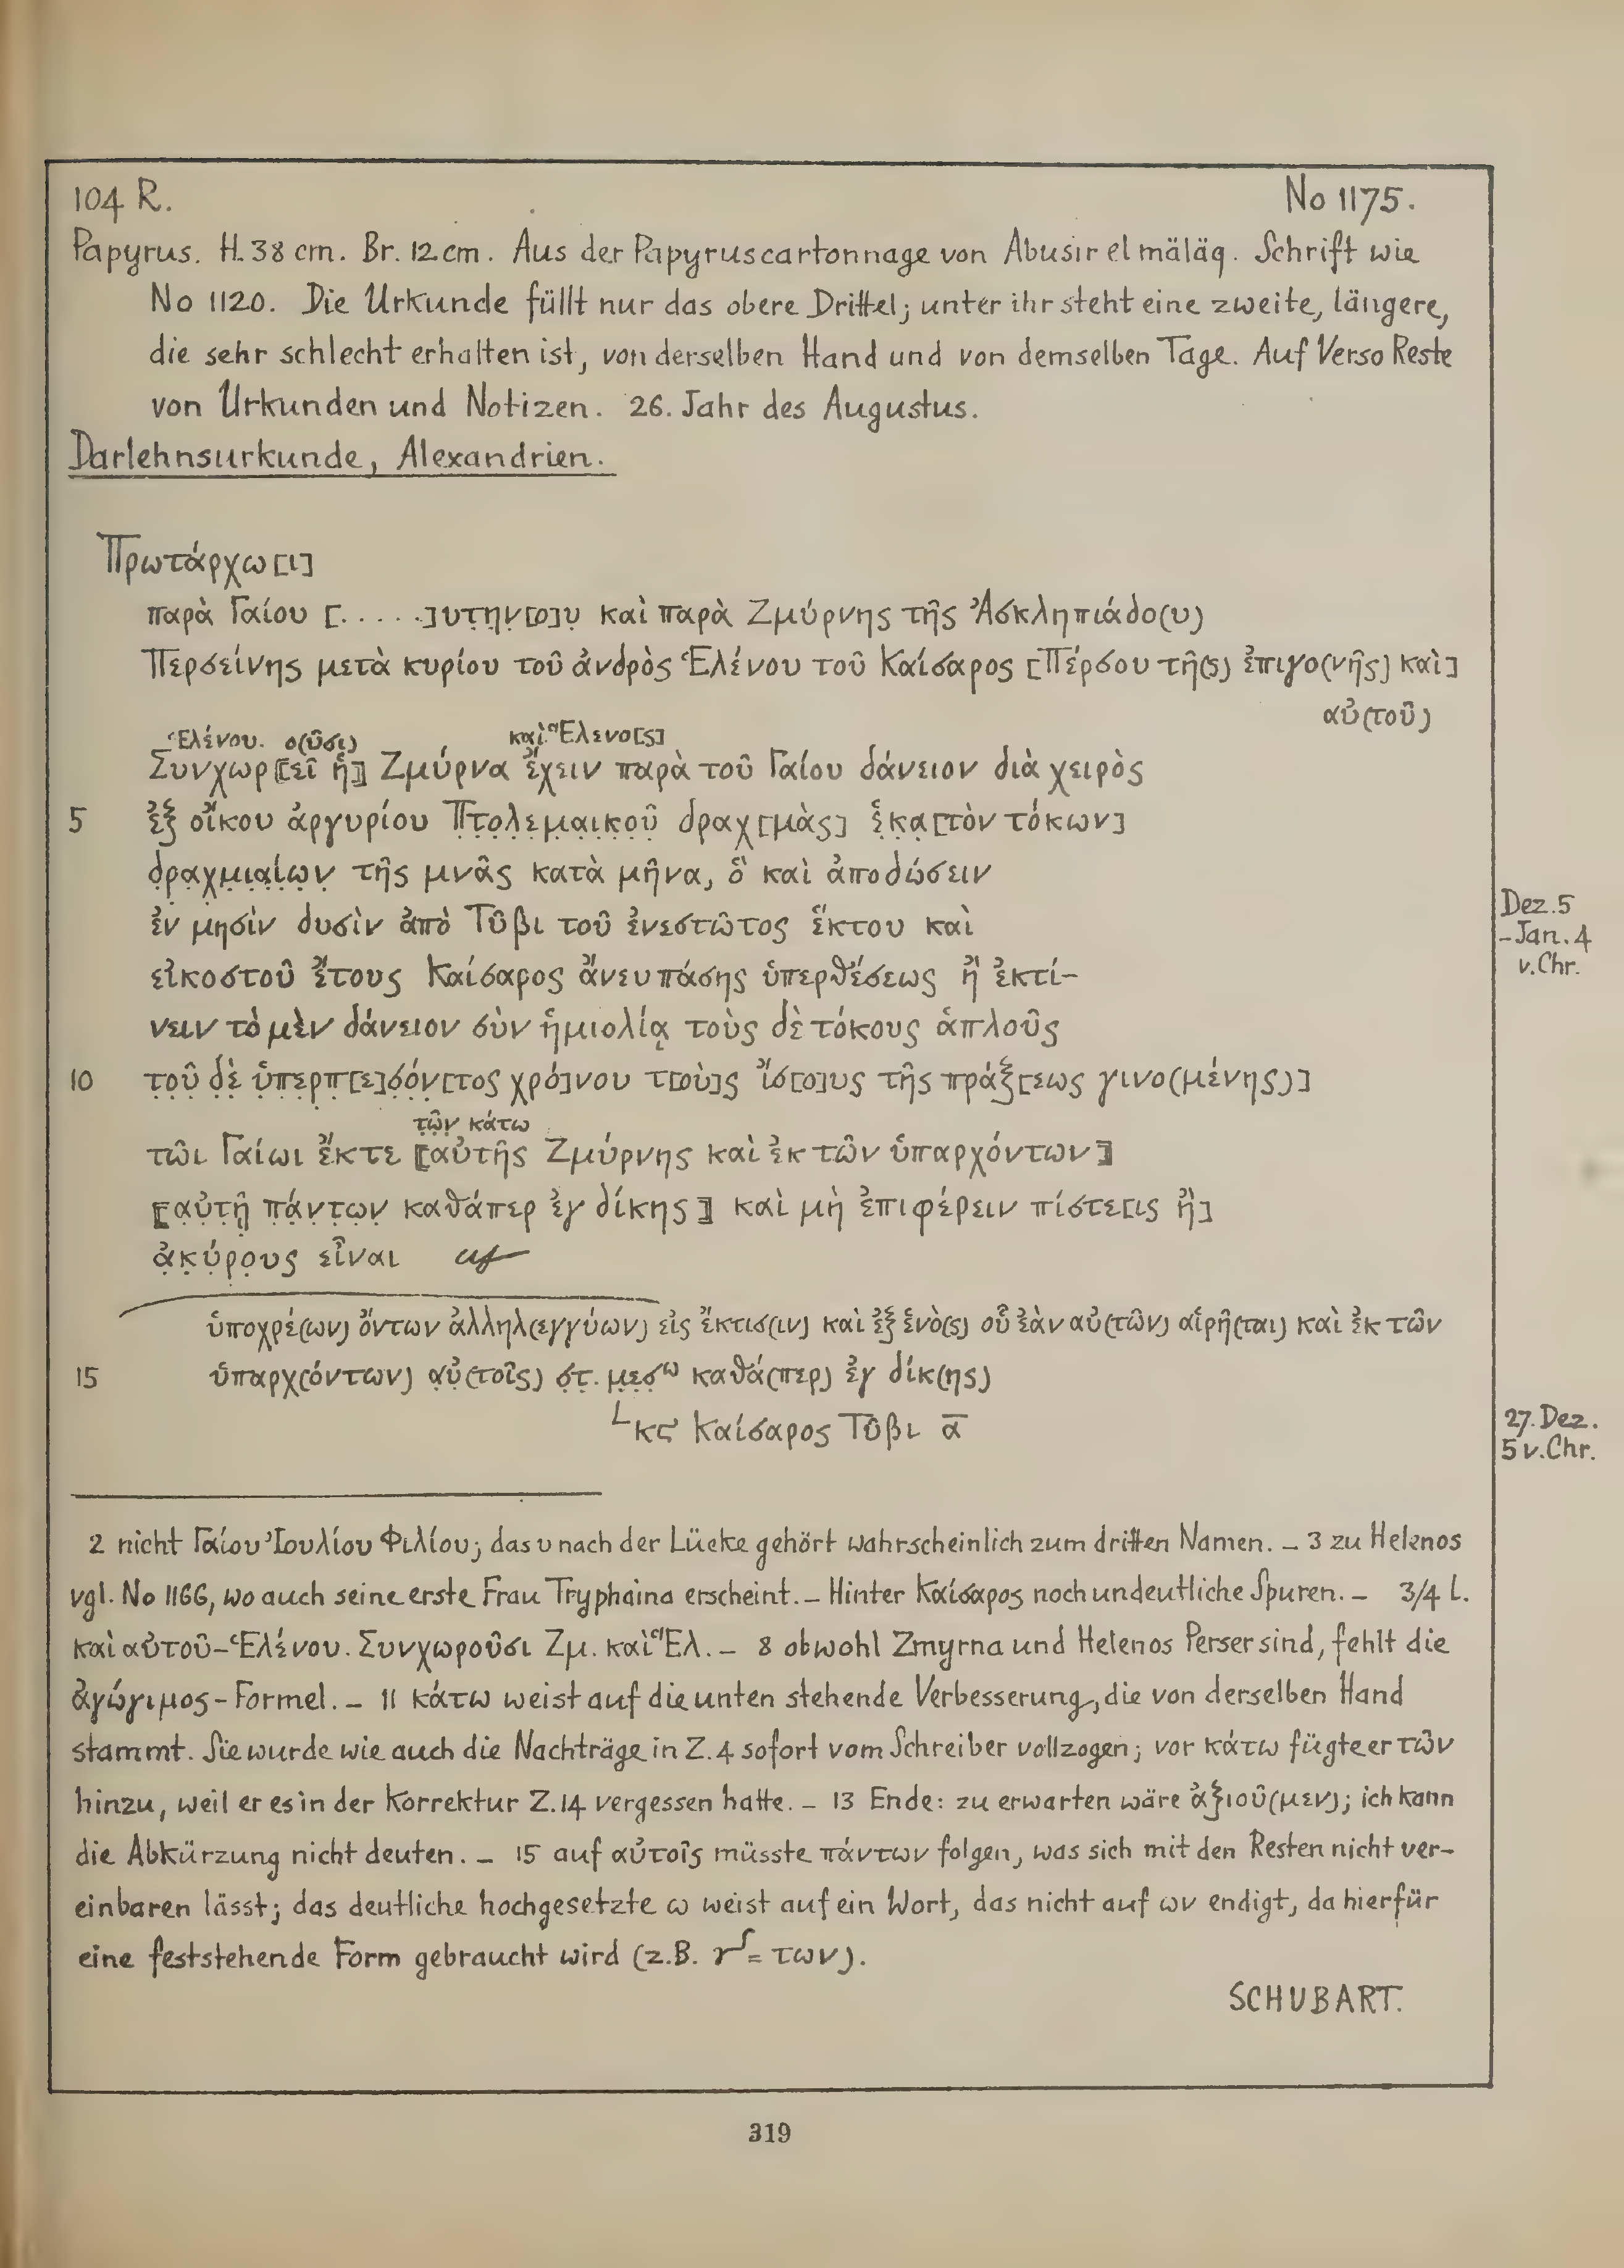 104 R. No 1175.
Papyrus. H. 38 cm. Br. 12 cm. Aus der Papyruscartonnage von Abusir el mäläq. Schrift wie
No 1120. Die Urkunde füllt nur das obere Drittel; unter ihr steht eine zweite, längere,
die sehr schlecht erhalten ist, von derselben Hand und von demselben Tage. Auf Verso Reste
von Urkunden und Notizen. 26. Jahr des Augustus.
Darlehnsurkunde, Alexandrien.
Πρωτάρχω[ι]
παρὰ Γαίου [. . . . .]υτ̣η̣ν̣[ο]υ̣ καὶ παρὰ Ζμύρνης τῆς Ἀσκληπιάδο(υ)
Περσείνης μετὰ κυρίου τοῦ ἀνδρὸς Ἑλένου τοῦ Καίσαρος [Πέρσου τῆ(ς) ἐπιγο(νῆς) καὶ]
αὐ(τοῦ)
Ἑλένου. ο(ῦσι) καὶ Ἕλενο[ς]
Συνχωρ⟦εῖ ἡ⟧ Ζμύρνα ἔχειν παρὰ τοῦ Γαίου δάνειον διὰ χειρὸς
5 ἐξ οἴκου ἀργυρίου Π̣τ̣ο̣λ̣ε̣μ̣α̣ι̣κ̣ο̣ῦ̣ δραχ[μὰς] ἑ̣κ̣α̣[τὸν τόκων]
δ̣ρ̣α̣χ̣μ̣ι̣α̣ί̣ω̣ν̣ τῆς μνᾶς κατὰ μῆνα, ὃ καὶ ἀποδώσειν
ἐν μησὶν δυσὶν ἀπὸ Τῦβι τοῦ ἐνεστῶτος ἕκτου καὶ
Dez. 5
-Jan. 4
v. Chr.
εἰκοστοῦ ἔτους Καίσαρος ἄνευ πάσης ὑπερθέσεως ἢ ἐκτί-
νειν τὸ μὲν δάνειον σὺν ἡμιολίᾳ τοὺς δὲ τόκους ἁπλοῦς
10 τ̣ο̣ῦ̣ δ̣ὲ̣ ὑ̣π̣ε̣ρ̣π̣[ε]σ̣ό̣ν̣[τος χρό]νου τ[οὺ]ς ἴσ[ο]υς τῆς πράξ[εως γινο(μένης)]
τ̣ῶ̣ν̣ κάτω
τῶι Γαίωι ἔκ τε ⟦αὐτῆς Ζμύρνης καὶ ἐκ τῶν ὑπαρχόντων⟧
⟦α̣ὐ̣τ̣ῇ̣ π̣ά̣ν̣τ̣ω̣ν̣ καθάπερ ἐγ δίκης⟧ καὶ μὴ ἐπιφέρειν πίστε[ις ἢ]
ἀ̣κ̣ύ̣ρ̣ο̣υς εἶναι
ὑποχρέ(ων) ὄντων ἀλληλ(εγγύων) εἰς ἔκτισ(ιν) καὶ ἐξ ἑνὸ(ς) οὗ ἐὰν αὐ(τῶν) αἱρῆ(ται) καὶ ἐκ τῶν
15 ὑπαρχ(όντων) α̣ὐ̣(τοῖς) σ̣τ̣. μ̣ε̣σ̣ω καθά(περ) ἐγ δίκ(ης)
└κϛ Καίσαρος Τῦβι α̅
27. Dez.
5 v. Chr.
2 nicht Γαίου Ἰουλίου Φιλίου; das υ nach der Lücke gehört wahrscheinlich zum dritten Namen. – 3 zu Helenos
vgl. No 1166, wo auch seine erste Frau Tryphaina erscheint. – Hinter Καίσαρος noch undeutliche Spuren. – 3/4 l.
καὶ αὐτοῦ – Ἑλένου. Συνχωροῦσι Ζμ. καὶ Ἕλ. – 8 obwohl Zmyrna und Helenos Perser sind, fehlt die
ἀγώγιμος-Formel. – 11 κάτω weist auf die unten stehende Verbesserung, die von derselben Hand
stammt. Sie wurde wie auch die Nachträge in Z. 4 sofort vom Schreiber vollzogen; vor κάτω fügte er τῶν
hinzu, weil er es in der Korrektur Z. 14 vergessen hatte. – 13 Ende: zu erwarten wäre ἀξιοῦ(μεν); ich kann
die Abkürzung nicht deuten. – 15 auf αὐτοῖς müsste πάντων folgen, was sich mit den Resten nicht ver-
einbaren lässt; das deutliche hochgesetzte ω weist auf ein Wort, das nicht auf ων endigt, da hierfür
eine feststehende Form gebraucht wird (z.B. = των).
SCHUBART.
319